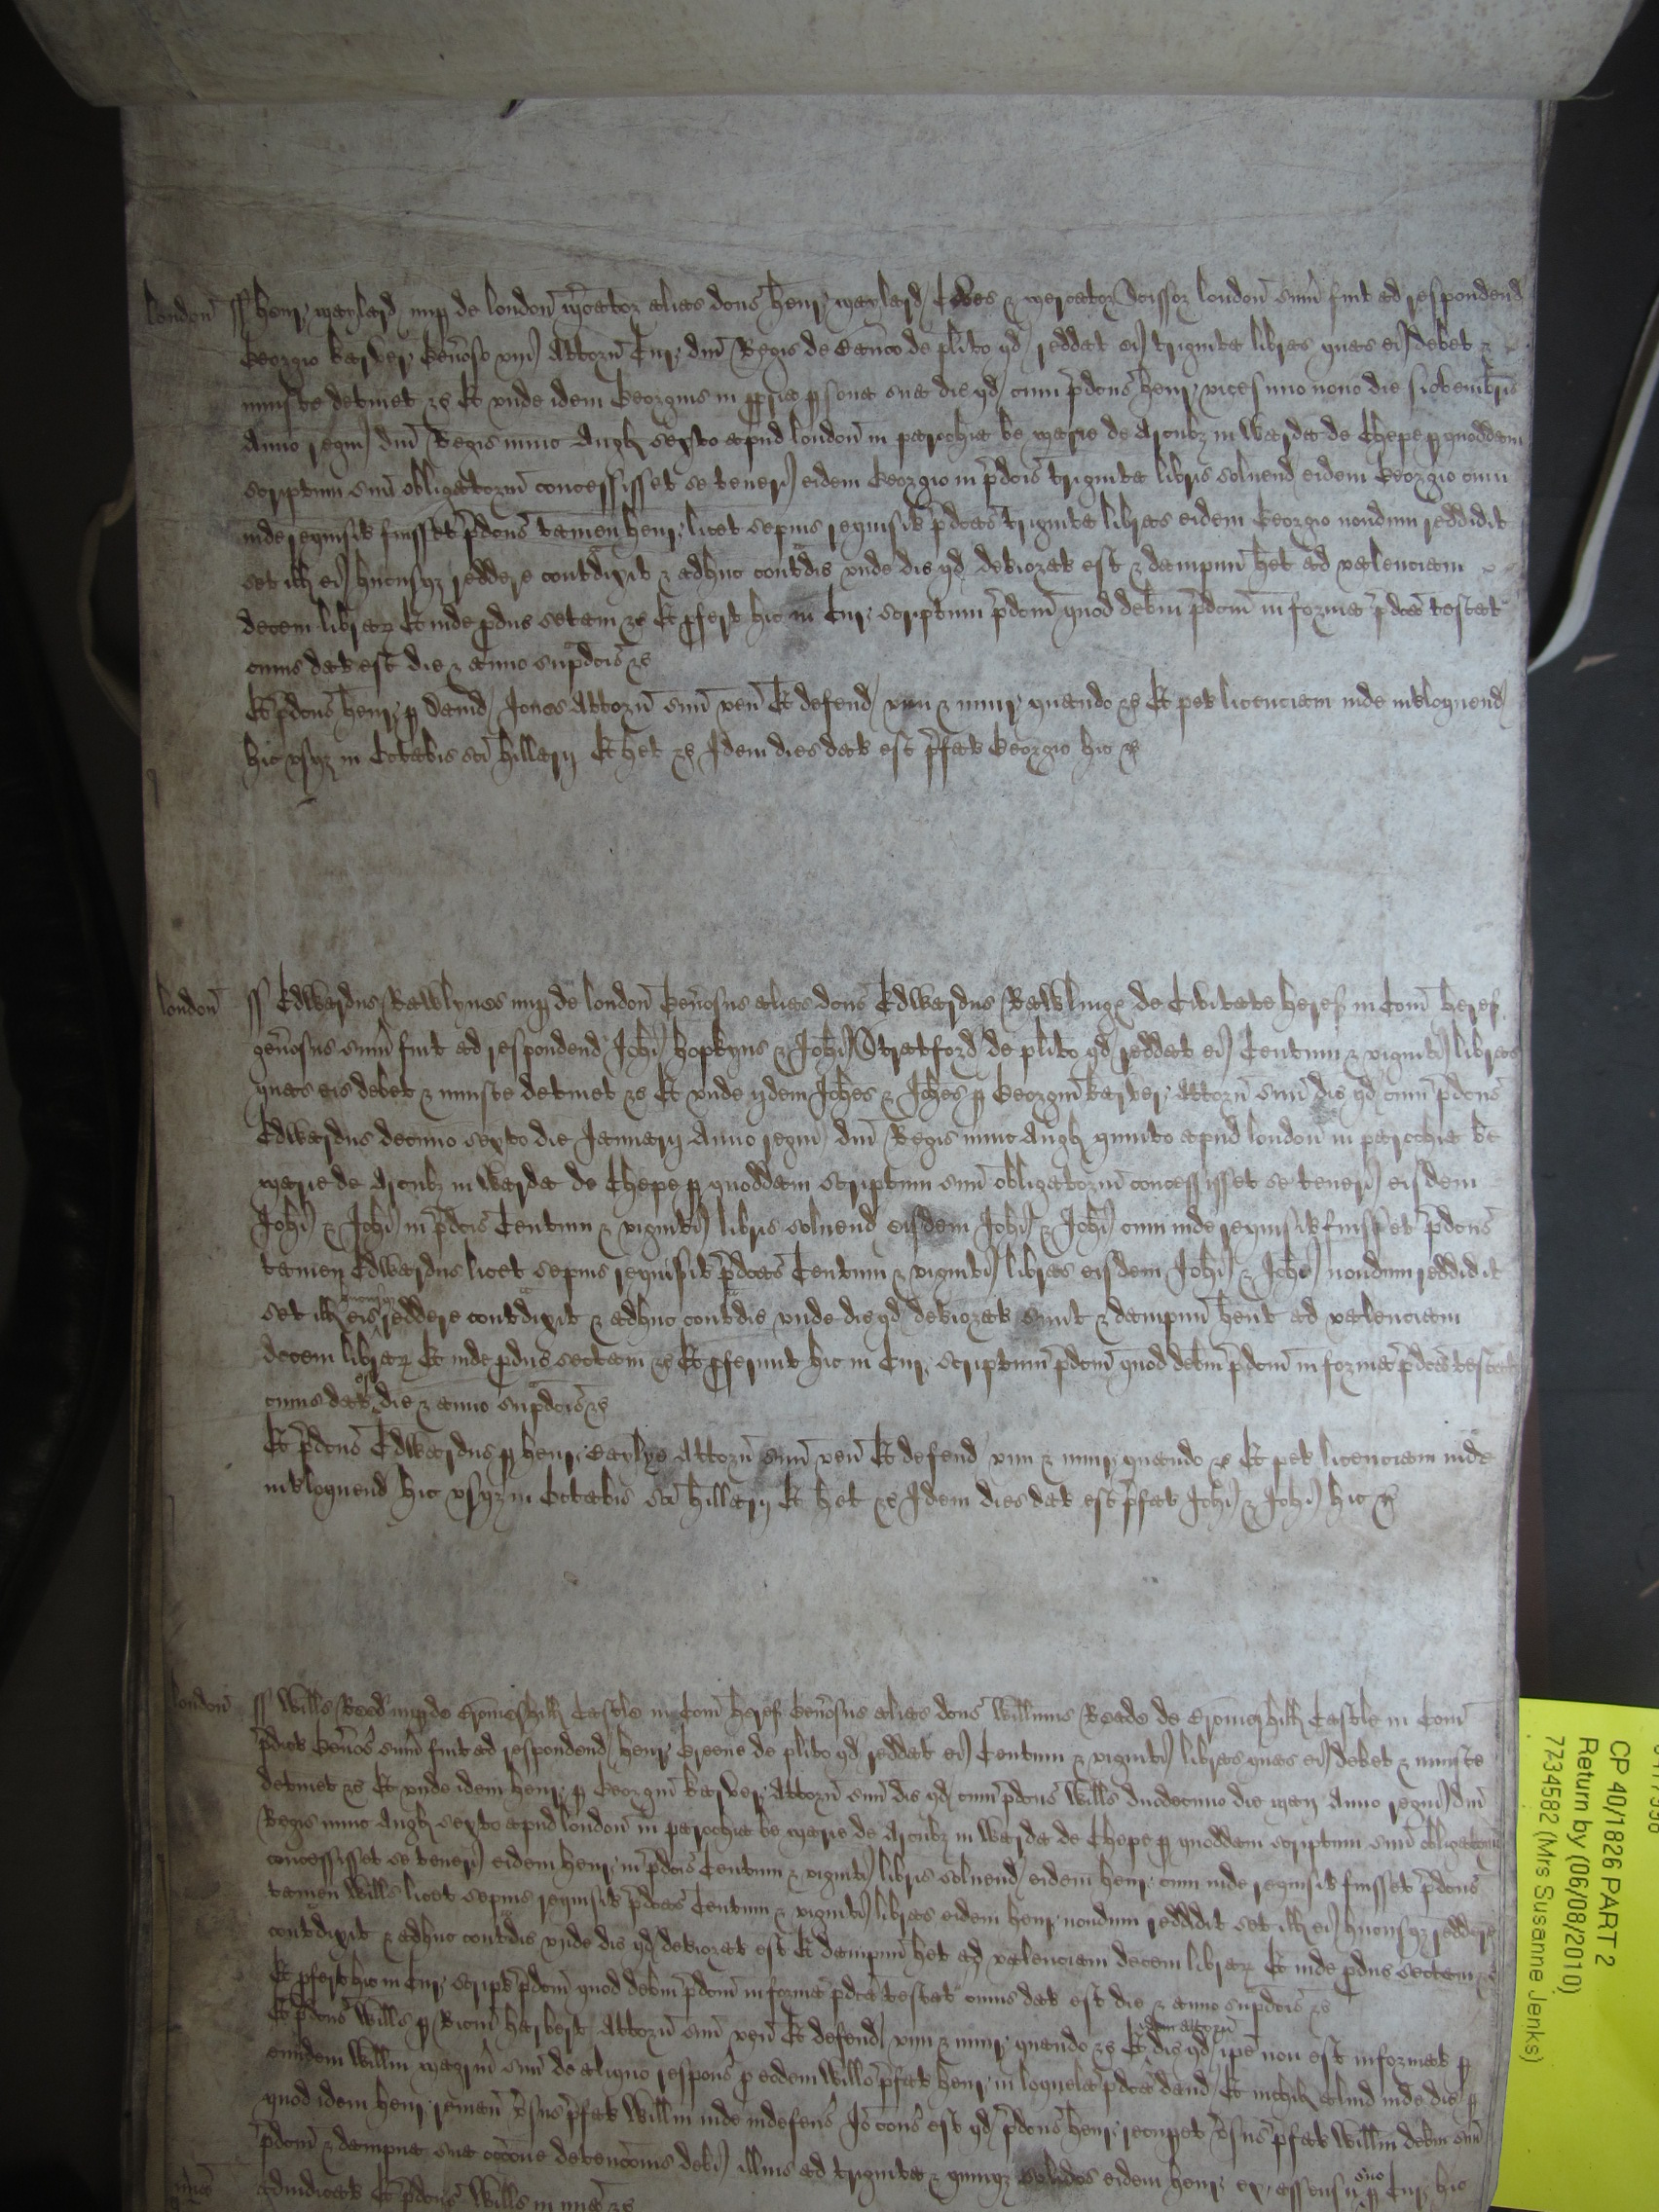 london ss Henr Maylard nup de london m̄cator alias dc̄us Henr Maylard Ciues & mercator Scissor london sum̄ fuit ad respondend
Georgio karver Gen̄oso vni Attorn̄ Cur dn̄i Regis de Banco de pl̄ito qd reddat ei triginta libras quas ei debet &
iniuste detinet &c Et vnde idem Georgius in ppria psona sua dic qd cum p̄dc̄us Henr vicesimo nono die Novembris
Anno regni dn̄i Regis nunc Angl sexto apud london in parochia be Marie de Arcubz in Warda de Chepe p quoddam
scriptum suū obligatoriū concessisset se teneri eidem Georgio in p̄dc̄is triginta libris soluend eidem Georgio cum
inde requisit fuisset p̄dc̄us tamen Henr licet sepius requisit p̄dc̄as triginta libras eidem Georgio nondum reddidit
set ill ei hucusqz reddere contradixit & adhuc contradic vnde dic qd deteriorat est & dampnū het ad valenciam
decem librar Et inde pduc sectam &c Et pfert hic in Cur scriptum p̄dc̄m quod debm p̄dc̄m in forma p̄dc̄a testat
cuius dat est die & anno sup̄dc̄is &c
Et p̄dc̄us Henr p David Jones Attorn̄ suū ven̄ Et defend vim & iniur quando &c Et pet licenciam inde int̄loquend
hic vsqz in Octabis sc̄i Hillarij Et het &c Idem dies dat est p̄fat Georgio hic &c
london ss Edwardus Rawlynes nup de london Gen̄osus alias dc̄us Edwardus Rawlinge de Civitate Heref in Com̄ Heref
gen̄osus sum̄ fuit ad respondend Joh̄i Hopkyns & Joh̄i Stratford de pl̄ito qd reddat ei Centum & viginti libras
quas eis debet & iniuste detinet &c Et vnde ijdem Joh̄es & Joh̄es p Georgiū karver Attorn̄ suū dic qd cum p̄dc̄us
Edwardus decimo sexto die Januarij Anno regni dn̄i Regis nunc Angl quinto apud london in parochia be
Marie de Arcubz in Warda de Chepe p quoddam scriptum suū obligatoriū concessisset se teneri eisdem
Joh̄i & Joh̄i in p̄dc̄is Centum & viginti libris soluend eisdem Joh̄i & Joh̄i cum inde requisit fuisset p̄dc̄us
tamen Edwardus licet sepius requisit p̄dc̄as Centum & viginti libras eisdem Joh̄i & Joh̄i nondum reddidit
set ill eis hucusqz reddere contradixit & adhuc contradic vnde dic qd deteriorat sunt & dampnū hent ad valenciam
decem librar Et inde pduc sectam &c Et pferunt hic in Cur scriptum p̄dc̄m quod debm p̄dc̄m in forma p̄dc̄a testat
cuius dat est die & anno sup̄dc̄is &c
Et p̄dc̄us Edwardus p Henr Baylye Attorn̄ suū ven̄ Et defend vim & iniur quando &c Et pet licenciam inde
int̄loquend hic vsqz in Octabis sc̄i Hillarij Et het &c Idem dies dat est p̄fat Joh̄i & Joh̄i hic &c
london ss Will̄s Reed nup de Castle in Com̄ Heref Gen̄osus alias dc̄us Will̄mus Reade de Castle in Com̄
p̄dict Gen̄os sum̄ fuit ad respondend Henr Greene de pl̄ito qd reddat ei Centum & viginti libras quas ei debet & iniuste
detinet &c Et vnde idem Henr p Georgiū karver Attorn̄ suū dic qd cum p̄dc̄us Will̄s duodecimo die Maij Anno regni dn̄i
Regis nunc Angl sexto apud london in parochia be Marie de Arcubz in Warda de Chepe p quoddam scriptum suū obligatoriū
concessisset se teneri eidem Henr in p̄dc̄is Centum & viginti libris soluend eidem Henr cum inde requisit fuisset p̄dc̄us
tamen Will̄s licet sepius requisit p̄dc̄as Centum & viginti libras eidem Henr nondum reddidit set ill ei hucusqz reddere
contradixit & adhuc contradic vnde dic qd deteriorat est Et dampnū het ad valenciam decem librar Et inde pduc sectam &c
Et pfert hic in Cur script p̄dc̄m quod debm p̄dc̄m in forma p̄dc̄a testat cuius dat est die & anno sup̄dc̄is &c
Et p̄dc̄us Will̄s p Ric̄m Harbert Attorn̄ suū ven̄ Et defend vim & iniur quando &c Et idem attorn̄ dic qd ip̄e non est informat p
eundem Will̄m maḡrm suū de aliquo respons p eodem Will̄o p̄fat Henr in loquela p̄dc̄a dand Et nichil aliud inde dic p
quod idem Henr reman̄ v̄sus p̄fat Will̄m inde indefens Io cons est qd p̄dc̄us Henr recupet v̄sus p̄fat Will̄m debm suū
p̄dc̄m & dampna sua occ̄one detenc̄onis debi illius ad triginta & quinqz solidos eidem Henr ex assensu suo p Cur hic
mīa adiudicat Et p̄dc̄us Will̄s in mīa &c
CP 40/1826 PART 2
Return by (06/08/2010)
7734582 (Mrs Susanne Jenks)